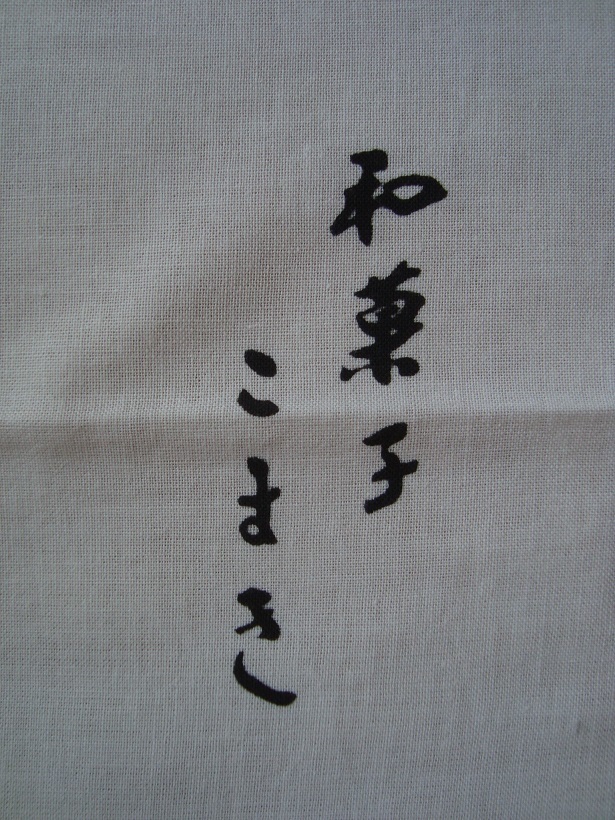 和菓子
こまき